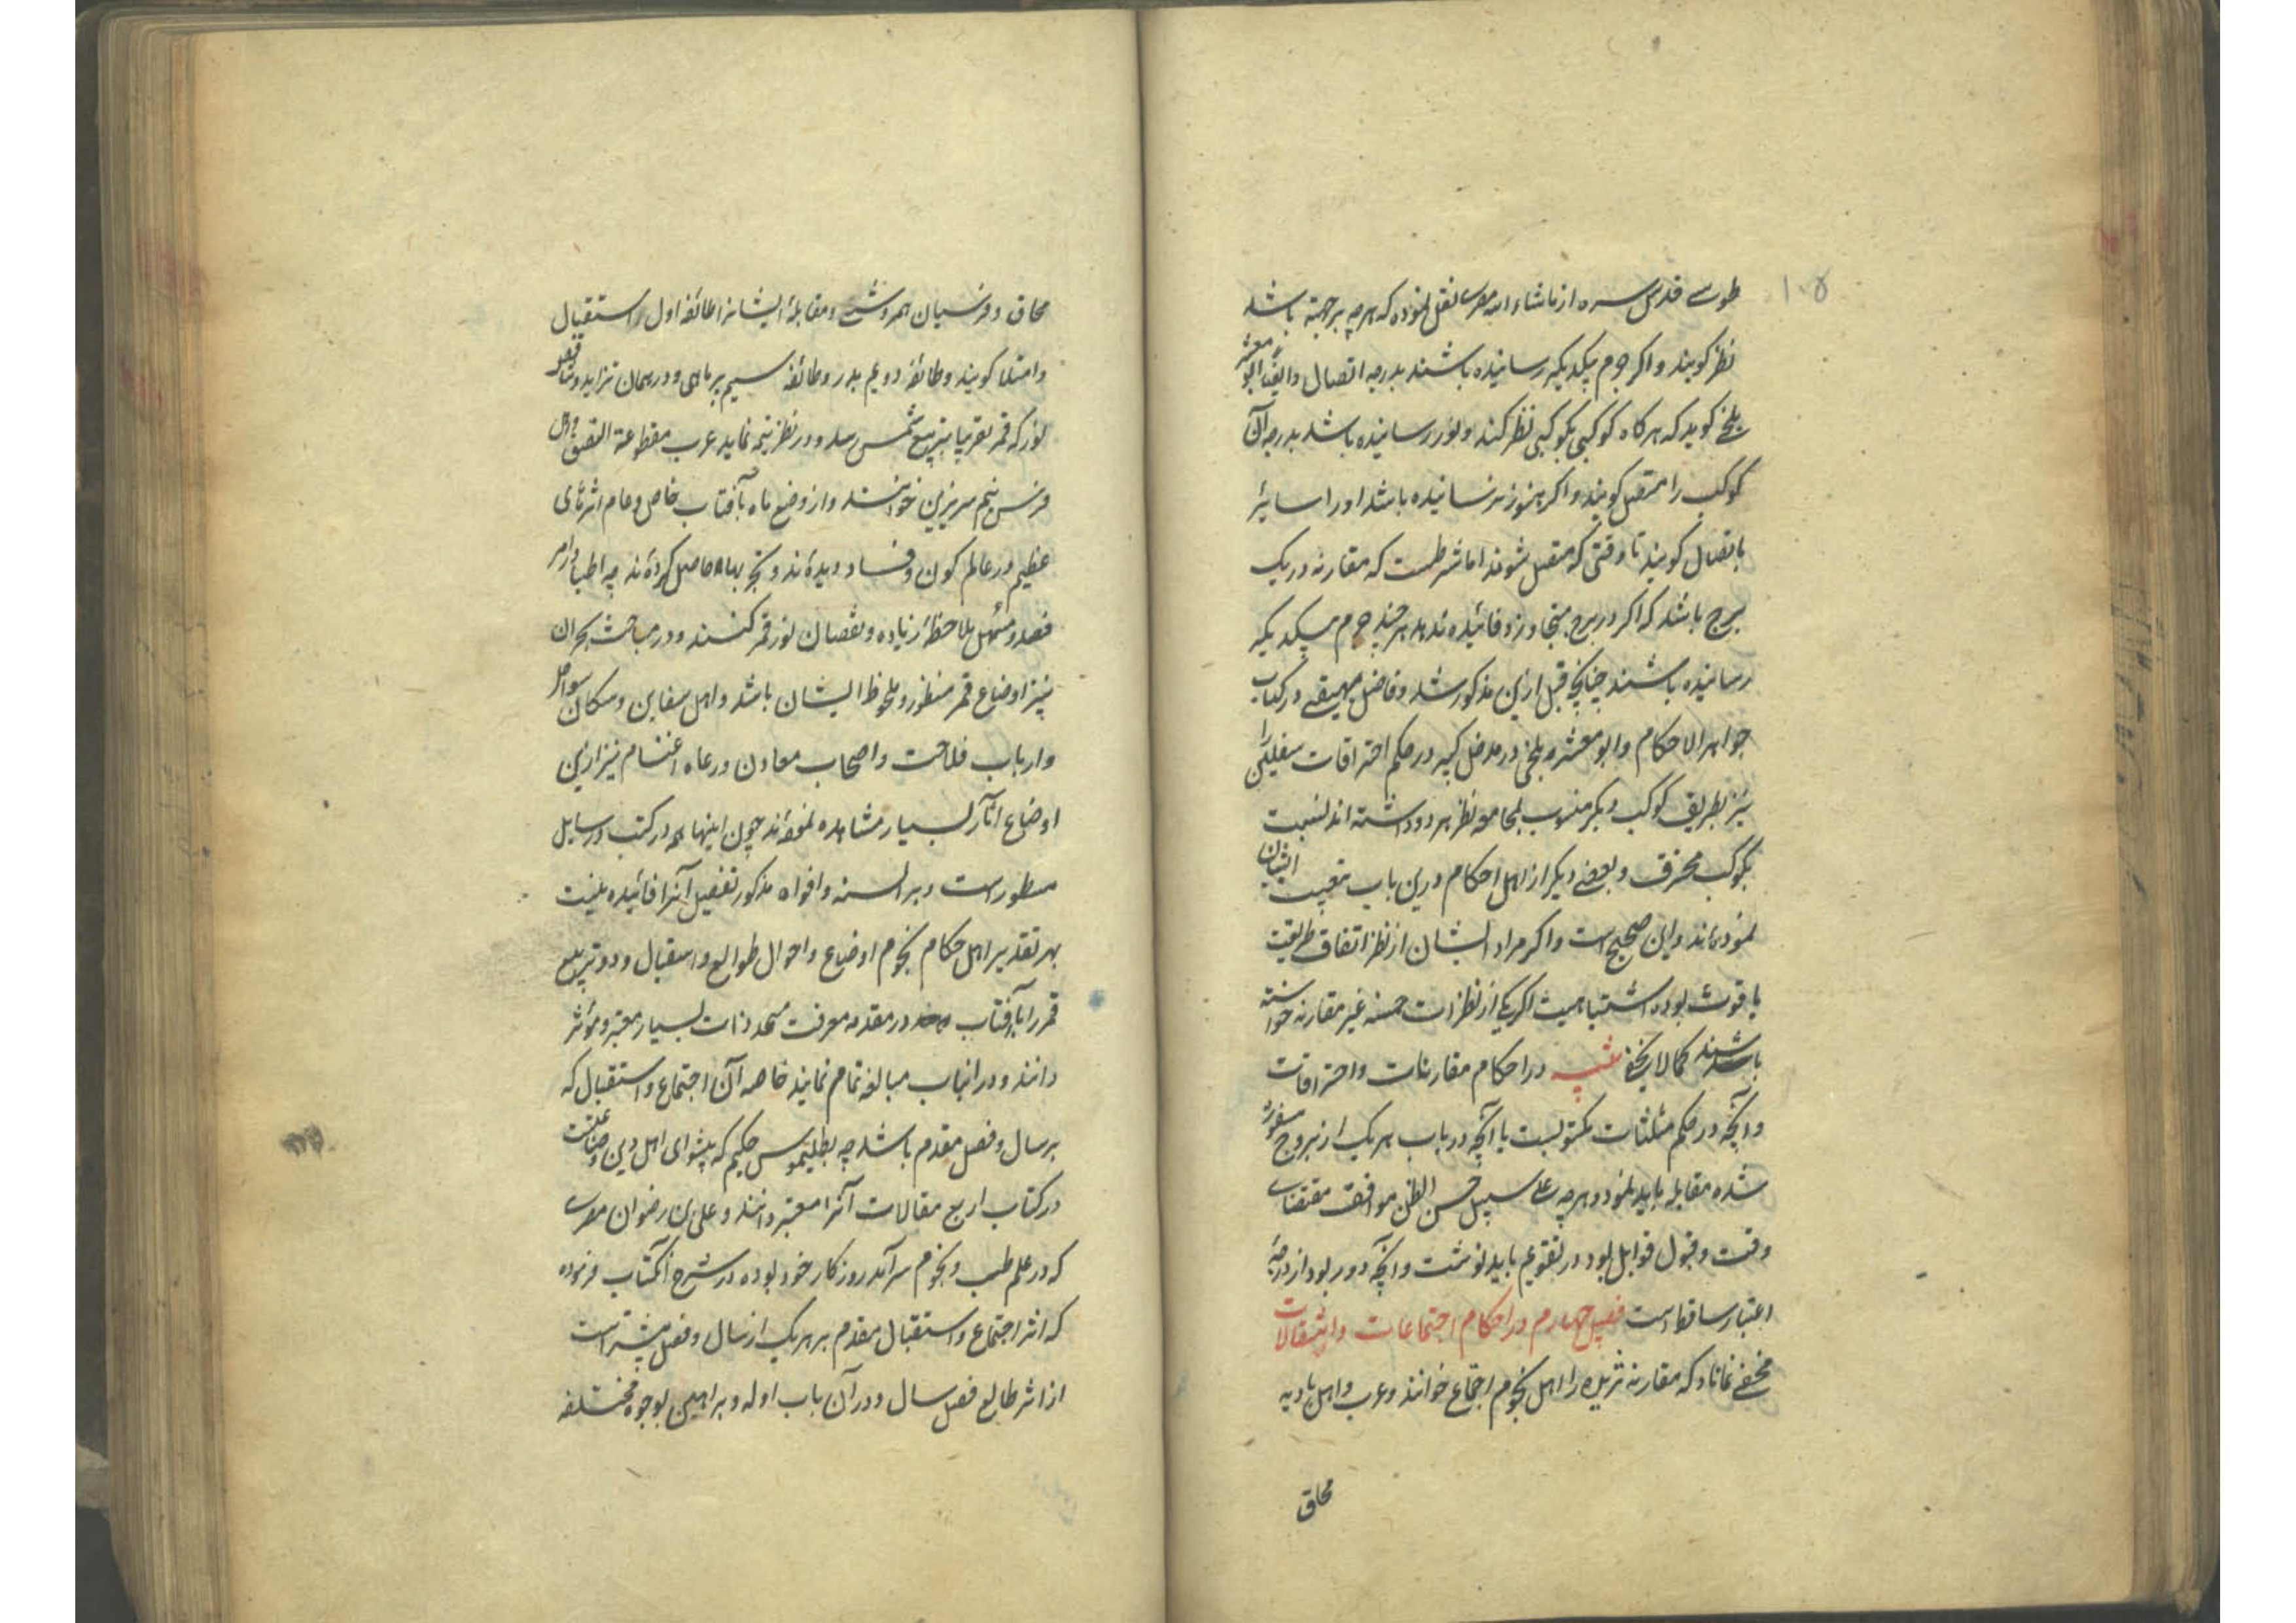 ۱۰۵
طوسے قدس سره از ماشاء الله مصرے نقل نموده که هرچه بر جهته باشد
نظر کویند واکر جرم بیکدیکر رسانیده باشند بدرجه اتصال وایضا ابو معشر
بلخے کوید که هرکاه کوکبی بکوکبی نظر کند ونور رسانیده باشد بدرجه آن
کوکب را متصل کویند واکر هنوز نرسانیده باشد اورا سایر
باتصال کویند تا وقتی که متصل شوند اما شرطست که مقارنه در یک
برج باشد که اکر در برج متجاوز وفائیده ندهد هرچند جرم بیکدیکر
رسانیده باشند چنانچه قبل ازین مذکور شد وفاضل بیهقے در کتاب
جواهر الاحکام وابو معشر بلخی در مدخل کبیر در حکم احتراقات سفلیین را
نیز بطریق کوکب دیکر منسوب بمجامعه نظر هر دو داشته اند نسبت
بکوکب محترق وبعضے دیکر از اهل احکام درین باب تتبعیت ایشان
نموده‌اند واین صحیح است واکر مراد ایشان از نظر اتفاق طریقت
یا قوت بوده اشتباهیست اکر یکی از نظرات خمسه غیر مقارنه خواسته
باشند کمالا یخفے تنبیه در احکام مقارنات واحتراقات
وآنچه در حکم مثلثات مکتوبست با آنچه در باب هریک از بروج مسفور
شده مقابله باید نمود وهرچه علے سبیل حسن الظن موافق مقتضاے
وقت وقبول قوابل بود در تقویم باید نوشت وآنچه دور بود از درجهٔ
اعتبار ساقط است فصل چهارم در احکام اجتماعات واستقبالات
مخفے نماناد که مقارنه نیرین را اهل نجوم اجتماع خوانند وعرب واهل بادیه
محاق
محاق وفرسیان همروشنے ومقابلهٔ ایشانرا طائفه اول استقبال
وامتلا کویند وطائفه دویم بدر وطائفه سیم پرماهی ودر همان تزاید وتناقص
نور که قمر تقریبا بتربیع شمس رسد ودر نظر نیمه نماید عرب مقطوعة النصف واهل
فرس نیم سریزین خوانند واز وضع ماه بآفتاب خاص وعام اثرهای
عظیم در عالم کون وفساد دیده‌اند وتجربها حاصل کرده‌اند چه اطبا در امر
فصد ومسهل ملاحظهٔ زیاده ونقصان نور قمر کنند ودر مباحث بحران
نیز اوضاع قمر منظور وملحوظ ایشان باشد واهل سفاین وسکان سواحل
وارباب فلاحت واصحاب معادن ورعاه اغنام نیز ازین
اوضاع آثار بسیار مشاهده نموده‌اند چون اینها همه در کتب ورسایل
مسطور است وبر السنه وافواه مذکور تفصیل آنرا فائیده نیست
بهر تقدیر اهل احکام نجوم اوضاع واحوال طوالع واستقبال ودو تربیع
قمر را بآفتاب در مقدمه معرفت محدثات بسیار معتبر وموثر
دانند ودر اینباب مبالغه تمام نمایند خاصه آن اجتماع واستقبال که
بر سال وفصل مقدم باشد چه بطلیموس حکیم که پیشوای اهل دین وصناعتست
در کتاب اربع مقالات آنرا معتبر داند وعلی بن رضوان مصرے
که در علم طب ونجوم سرآمد روزکار خود بوده در شرح آنکتاب فرموده
که اثر اجتماع واستقبال مقدم بر هریک از سال وفصل بیشتر است
از اثر طالع فصل سال ودر آن باب ادله وبراهین بوجوه مختلفه